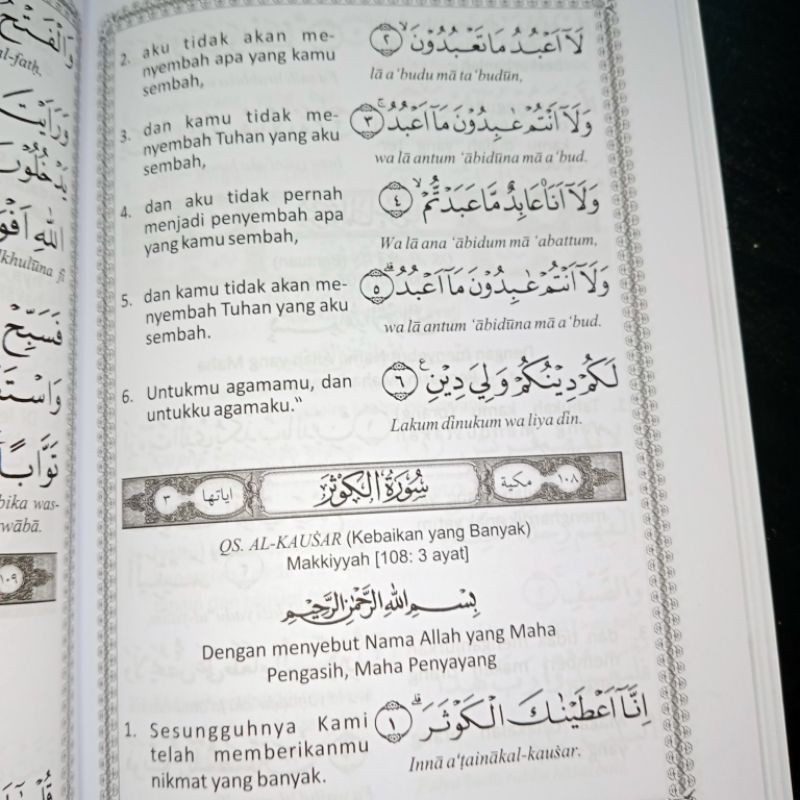 2. aku tidak akan me-
nyembah apa yang kamu
sembah,
لَآ اَعْبُدُ مَا تَعْبُدُوْنَۙ ٢
lā a‘budu mā ta‘budūn,
3. dan kamu tidak me-
nyembah Tuhan yang aku
sembah,
وَلَآ اَنْتُمْ عٰبِدُوْنَ مَآ اَعْبُدُۚ ٣
wa lā antum ‘ābidūna mā a‘bud.
4. dan aku tidak pernah
menjadi penyembah apa
yang kamu sembah,
وَلَآ اَنَا۠ عَابِدٌ مَّا عَبَدْتُّمْۙ ٤
Wa lā ana ‘ābidum mā ‘abattum,
5. dan kamu tidak akan me-
nyembah Tuhan yang aku
sembah.
وَلَآ اَنْتُمْ عٰبِدُوْنَ مَآ اَعْبُدُۗ ٥
wa lā antum ‘ābidūna mā a‘bud.
6. Untukmu agamamu, dan
untukku agamaku.“
لَكُمْ دِيْنُكُمْ وَلِيَ دِيْنِ ࣖ ٦
Lakum dīnukum wa liya dīn.
١٠٨ مكية سُوْرَةُ الْكَوْثَرِ اياتها ٣
QS. AL-KAUṠAR (Kebaikan yang Banyak)
Makkiyyah [108: 3 ayat]
بِسْمِ اللّٰهِ الرَّحْمٰنِ الرَّحِيْمِ
Dengan menyebut Nama Allah yang Maha
Pengasih, Maha Penyayang
1. Sesungguhnya Kami
telah memberikanmu
nikmat yang banyak.
اِنَّآ اَعْطَيْنٰكَ الْكَوْثَرَۗ ١
Innā a‘ṭainākal-kauṡar.
وَالْفَتْحُ
al-fatḥ,
وَرَاَيْتَ
يَدْخُلُوْنَ
اللّٰهِ اَفْوَ
dkhulūna fī
فَسَبِّحْ
وَاسْتَغْ
تَوَّابًا
bika was-
wābā.
١٠٩